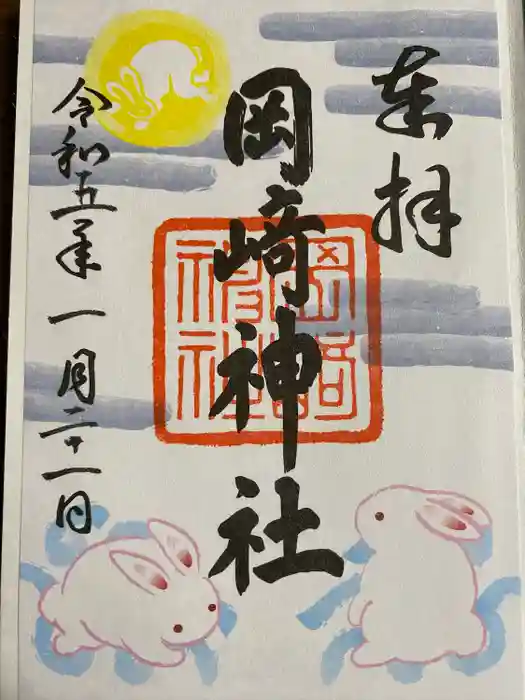 奉拝
岡崎神社
岡崎神社
令和五年一月二十一日